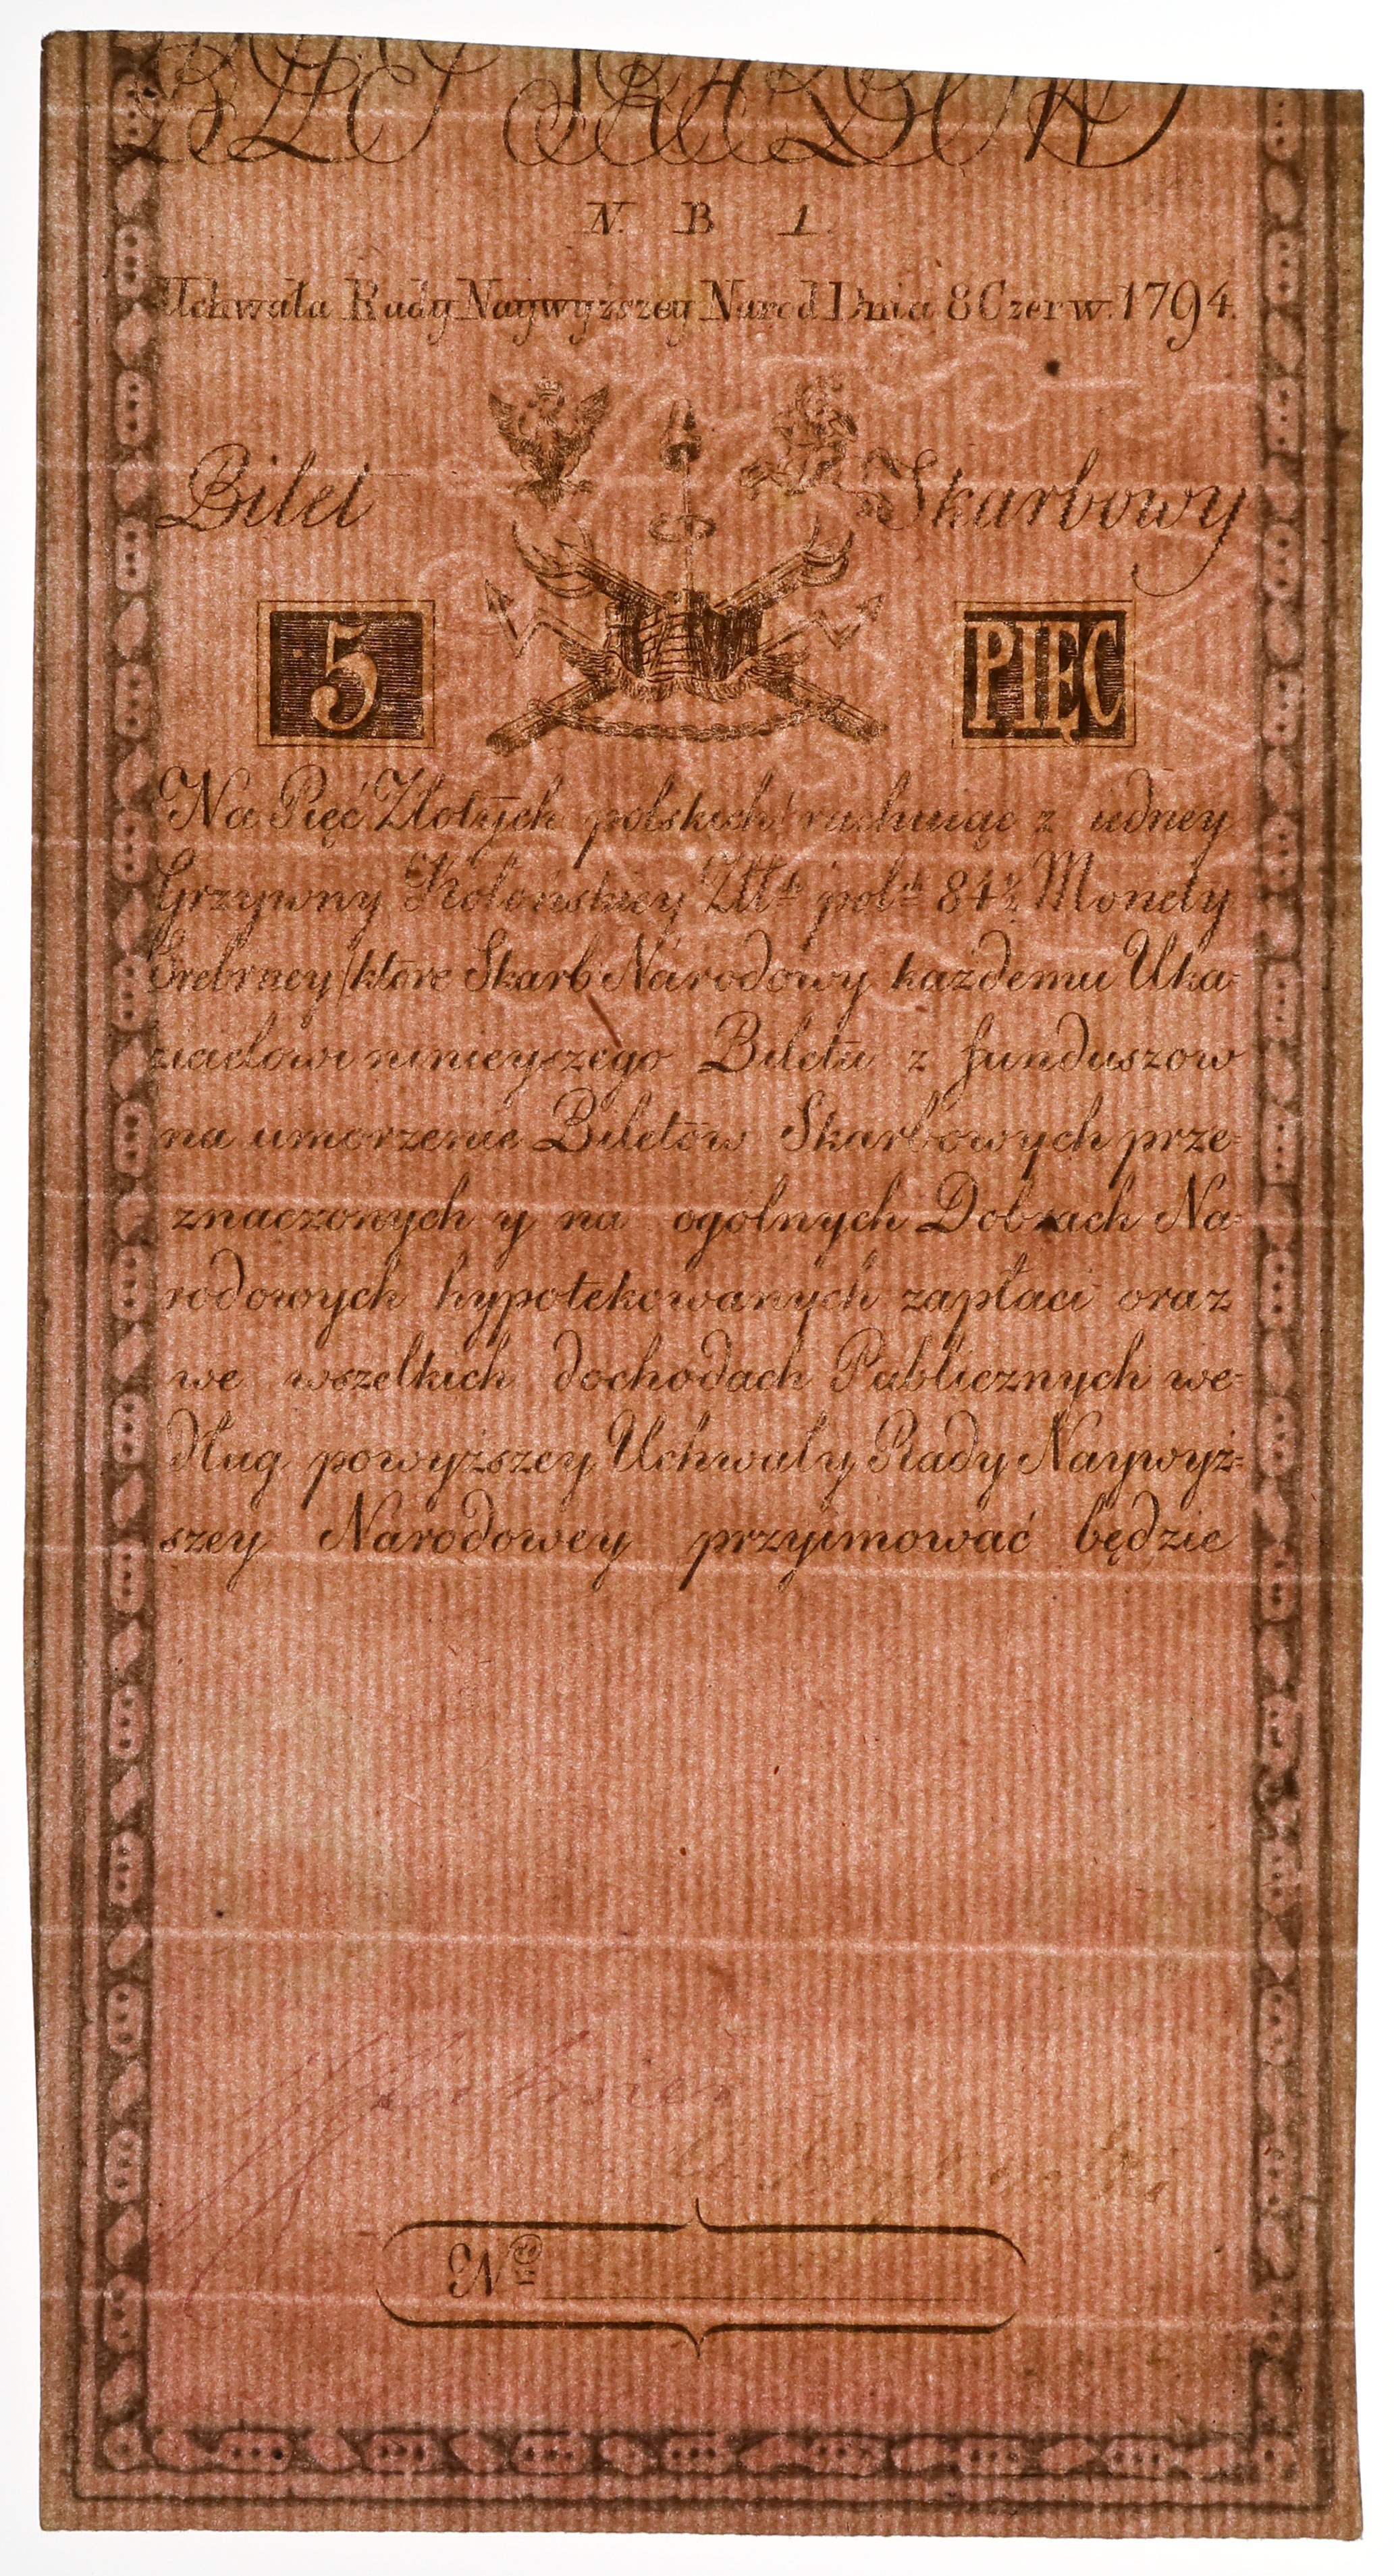 N. B 1.
Uchwała Rady Naywyzszey Narod Dnia 8 Czerw. 1794.
Bilet Skarbowy
5 PIĘC
Na Pięć Złotych polskich/rachuiąc z iedney
Grzywny Kolońskiey Złł: pol: 84½ Monety
Srebrney/ktore Skarb Narodowy każdemu Uka=
zicielowi ninieyszego Biletu z funduszow
na umorzenie Biletow Skarbowych prze=
znaczonych y na ogolnych Dobrach Na=
rodowych hypotekowanych zapłaci oraz
we wszelkich dochodach Publicznych we=
dług powyższey Uchwały Rady Naywyż=
szey Narodowey przyimować będzie
Nro